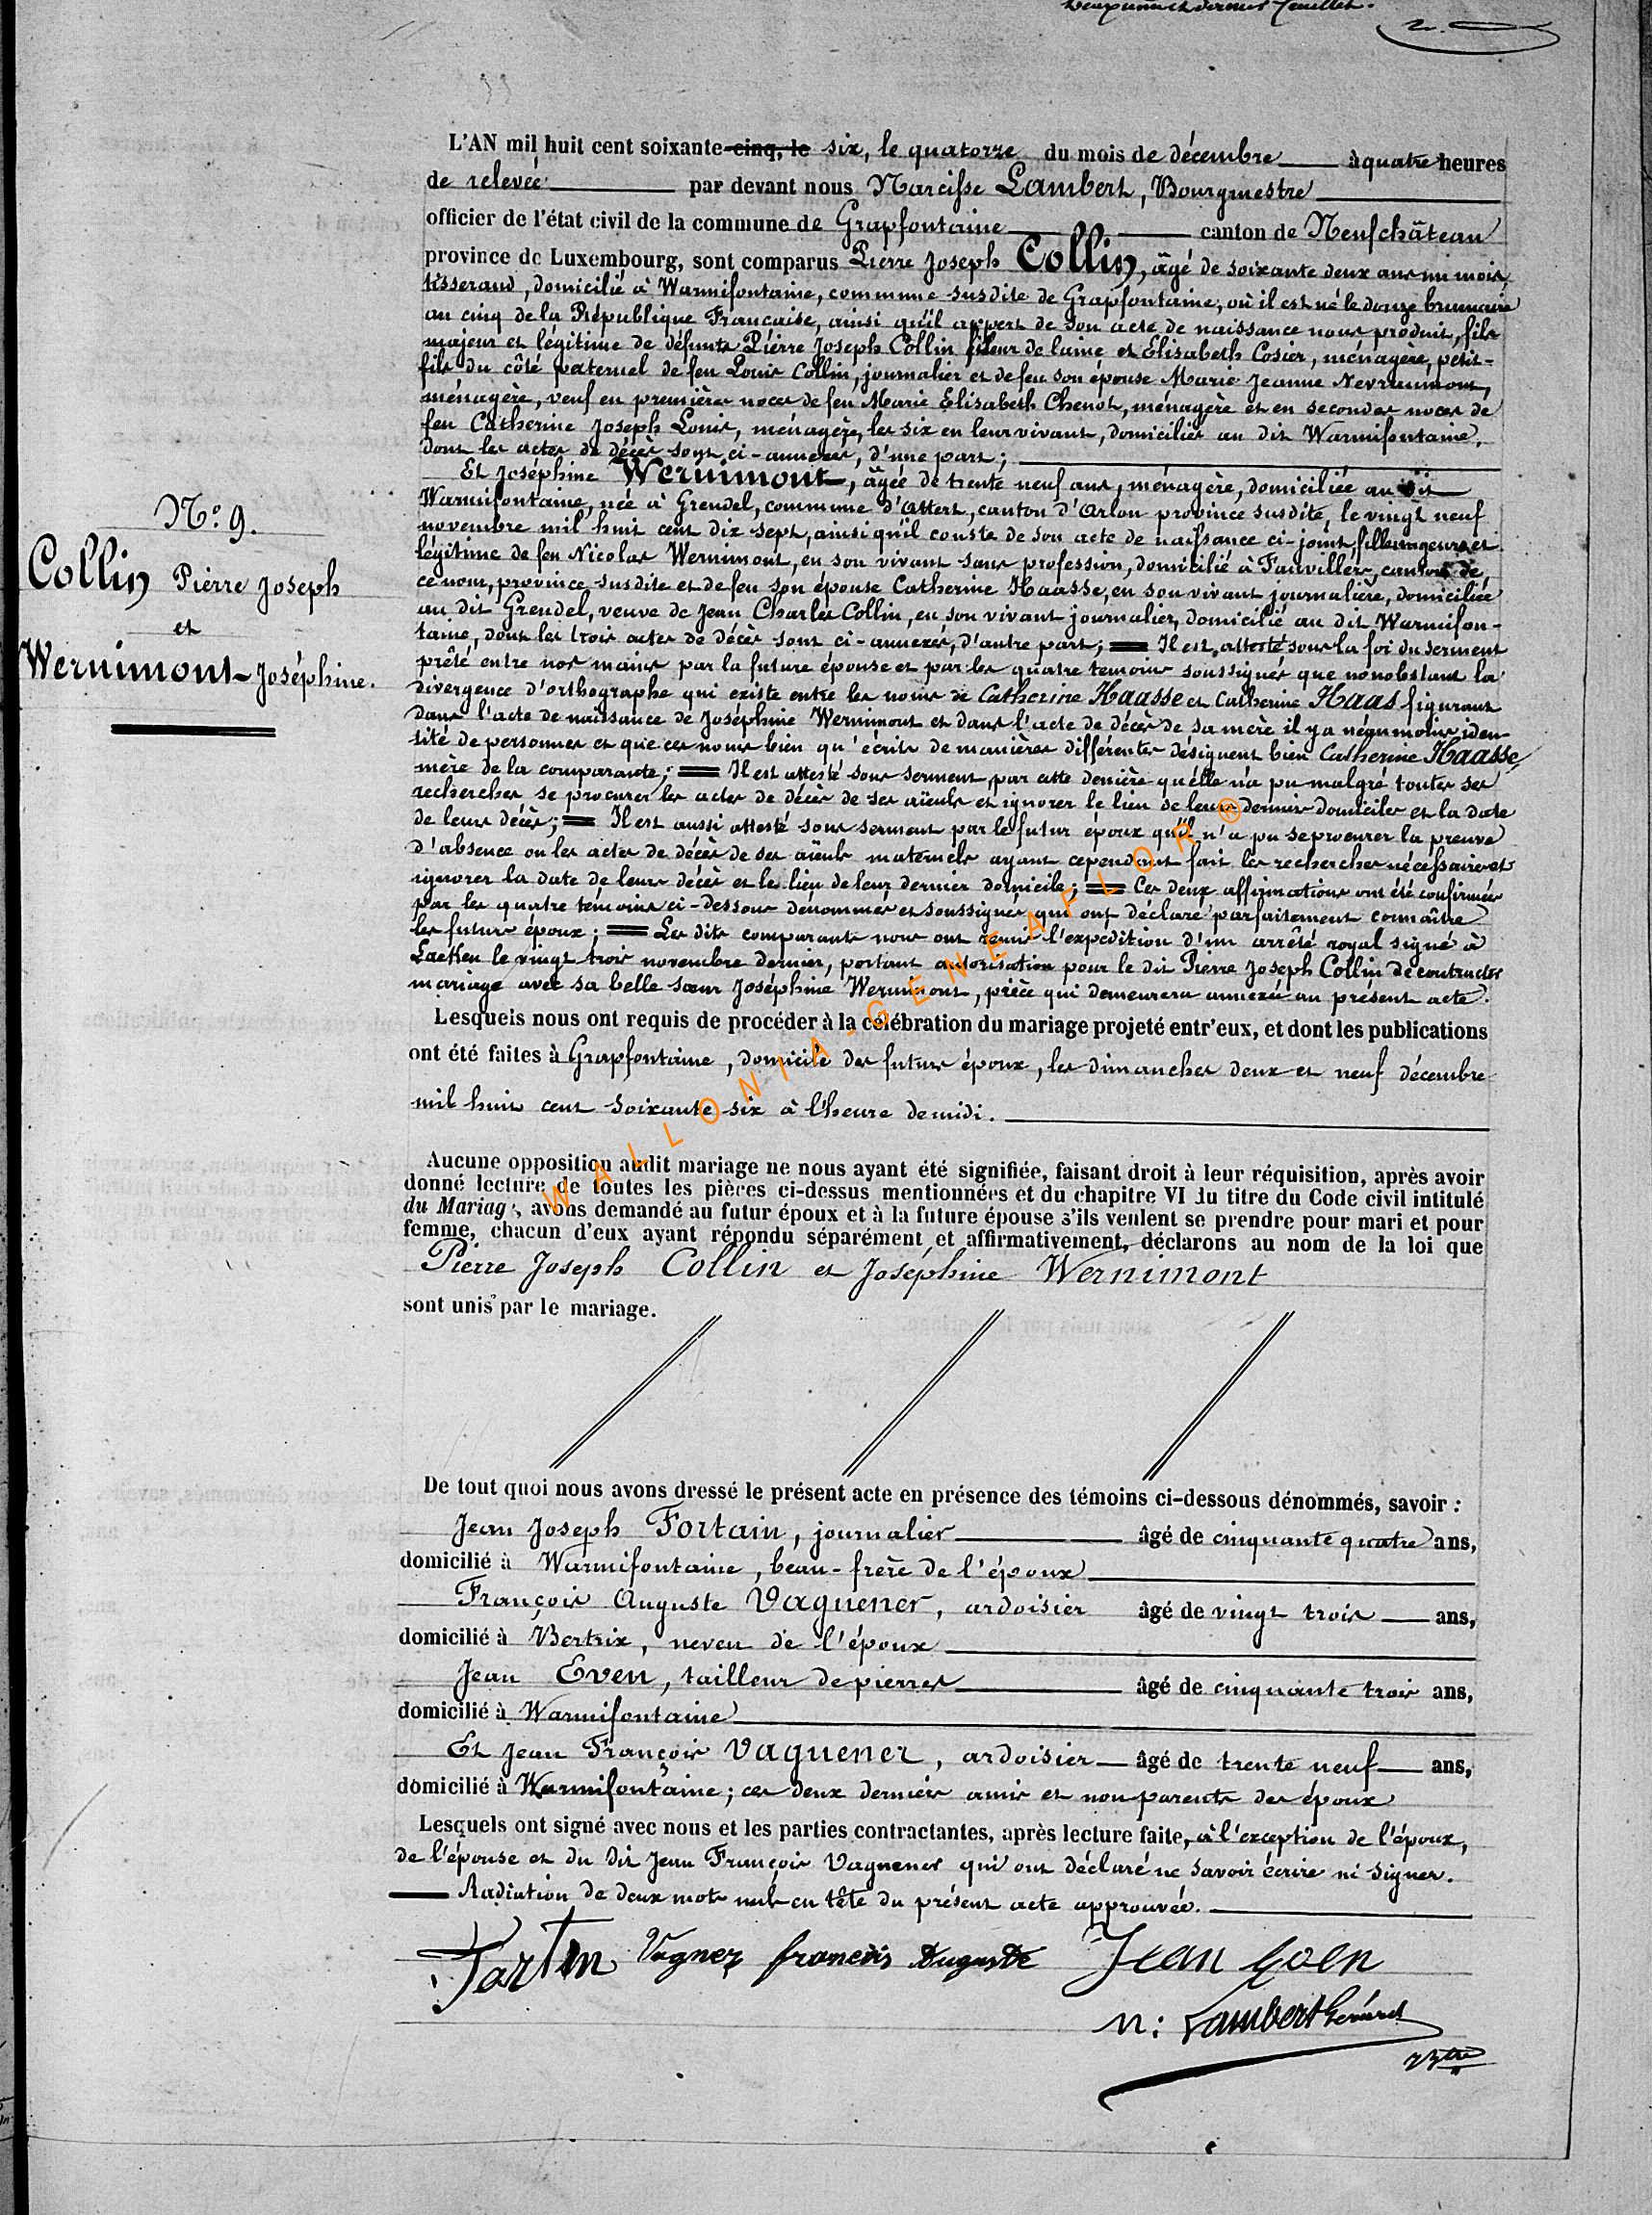 L'AN mil huit cent soixante-cinq, le six, le quatorze du mois de décembre à quatre heures
de relevée par devant nous Narcisse Lambert, Bourgmestre
officier de l'état civil de la commune de Grapfontaine canton de Neufchâteau
province de Luxembourg, sont comparus Pierre Joseph Collin, âgé de soixante deux ans un mois,
tisserand, domicilié à Warmifontaine, commune susdite de Grapfontaine, où il est né le douze brumaire
an cinq de la République Française, ainsi qu'il appert de son acte de naissance nous produit, fils
majeur et légitime de défunts Pierre Joseph Collin fileur de laine et Elisabeth Cosier, ménagère, petit-
fils du côté paternel de feu Louis Collin, journalier et de feu son épouse Marie Jeanne Nevraumont,
ménagère, veuf en premières noces de feu Marie Elisabeth Chenot, ménagère et en secondes noces de
feu Catherine Joseph Louis, ménagère, les six en leur vivant, domiciliés au dit Warmifontaine,
dont les actes de décès sont ci-annexés, d'une part;
Et Joséphine Wernimont, âgée de trente neuf ans, ménagère, domiciliée au dit
Warmifontaine, née à Grendel, commune d'Attert, canton d'Arlon province susdite, le vingt neuf
novembre mil huit cent dix sept, ainsi qu'il conste de son acte de naissance ci-joint, fille majeure et
légitime de feu Nicolas Wernimont, en son vivant sans profession, domicilié à Fauvillers, canton de
ce nom, province susdite et de feu son épouse Catherine Haasse, en son vivant journalière, domiciliée
au dit Grendel, veuve de Jean Charles Collin, en son vivant journalier, domicilié au dit Warmifon-
taine, dont les trois actes de décès sont ci-annexés, d'autre part; Il est attesté sous la foi du serment
prêté entre nos mains par la future épouse et par les quatre témoins soussignés que nonobstant la
divergence d'orthographe qui existe entre les noms de Catherine Haasse et Catherine Haas figurant
dans l'acte de naissance de Joséphine Wernimont et dans l'acte de décès de sa mère il y a néanmoins iden-
tité de personnes et que ces noms bien qu'écrits de manières différentes désignent bien Catherine Haasse,
mère de la comparante; Il est attesté sous serment, par cette dernière qu'elle n'a pu malgré toutes ses
recherches se procurer les actes de décès de ses aïeuls et ignorer le lieu de leurs derniers domiciles et la date
de leurs décès; Il est aussi attesté sous serment par le futur époux qu'il n'a pu se procurer la preuve
d'absence ou les actes de décès de ses aïeuls maternels ayant cependant fait les recherches nécessaires et
ignorer la date de leurs décès et le lieu de leur dernier domicile; Ces deux affirmations ont été confirmées
par les quatre témoins ci-dessous dénommés et soussignés qui ont déclaré parfaitement connaître
les futurs époux: Les dits comparants nous ont remis l'expédition d'un arrêté royal signé à
Laeken le vingt trois novembre dernier, portant autorisation pour le dit Pierre Joseph Collin de contracter
mariage avec sa belle soeur Joséphine Wernimont, pièce qui demeurera annexée au présent acte.
N.° 9.
Collin Pierre Joseph
et
Wernimont Joséphine.
Lesquels nous ont requis de procéder à la célébration du mariage projeté entr'eux, et dont les publications
ont été faites à Grapfontaine, domicile des futurs époux, les dimanches deux et neuf décembre
mil huit cent soixante six à l'heure de midi.
WALLONIA-GENEAFLOR ®
Aucune opposition audit mariage ne nous ayant été signifiée, faisant droit à leur réquisition, après avoir
donné lecture de toutes les pièces ci-dessus mentionnées et du chapitre VI du titre du Code civil intitulé
du Mariage, avons demandé au futur époux et à la future épouse s'ils veulent se prendre pour mari et pour
femme, chacun d'eux ayant répondu séparément et affirmativement, déclarons au nom de la loi que
Pierre Joseph Collin et Joséphine Wernimont
sont unis par le mariage.
De tout quoi nous avons dressé le présent acte en présence des témoins ci-dessous dénommés, savoir :
Jean Joseph Fortain, journalier âgé de cinquante quatre ans,
domicilié à Warmifontaine, beau-frère de l'époux
François Auguste Vaguener, ardoisier âgé de vingt trois ans,
domicilié à Bertrix, neveu de l'époux
Jean Even, tailleur de pierres âgé de cinquante trois ans,
domicilié à Warmifontaine
Et Jean François Vaguener, ardoisier âgé de trente neuf ans,
domicilié à Warmifontaine; ces deux derniers amis et non parents des époux
Lesquels ont signé avec nous et les parties contractantes, après lecture faite, à l'exception de l'époux,
de l'épouse et du dit Jean François Vaguener qui ont déclaré ne savoir écrire ni signer.
Radiation de deux mots nuls en tête du présent acte approuvée.
Fortin Vagner françois Auguste Jean Even
N: Lambert Gérard